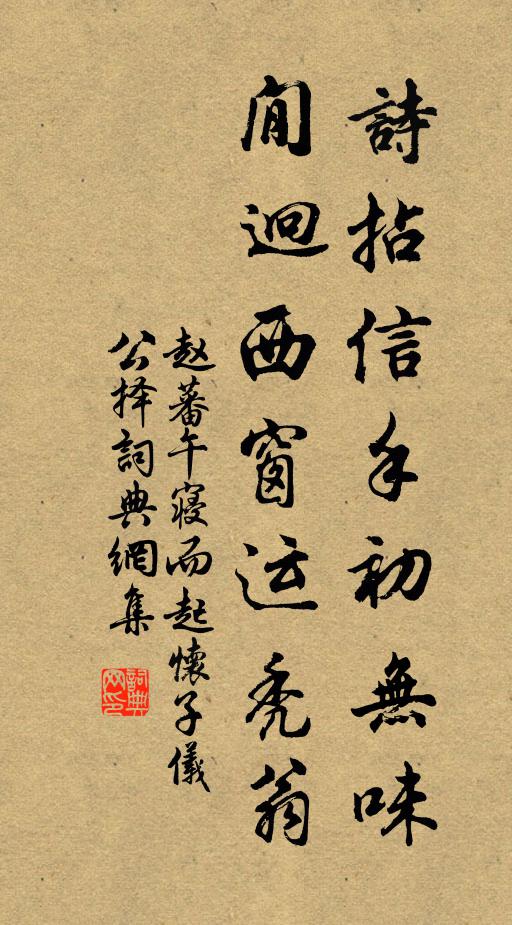 詩拈信手初無味
閒迴西窗运秃翁
赵蕃午寝而起懷子儀
公择詞典網集
詞典网印